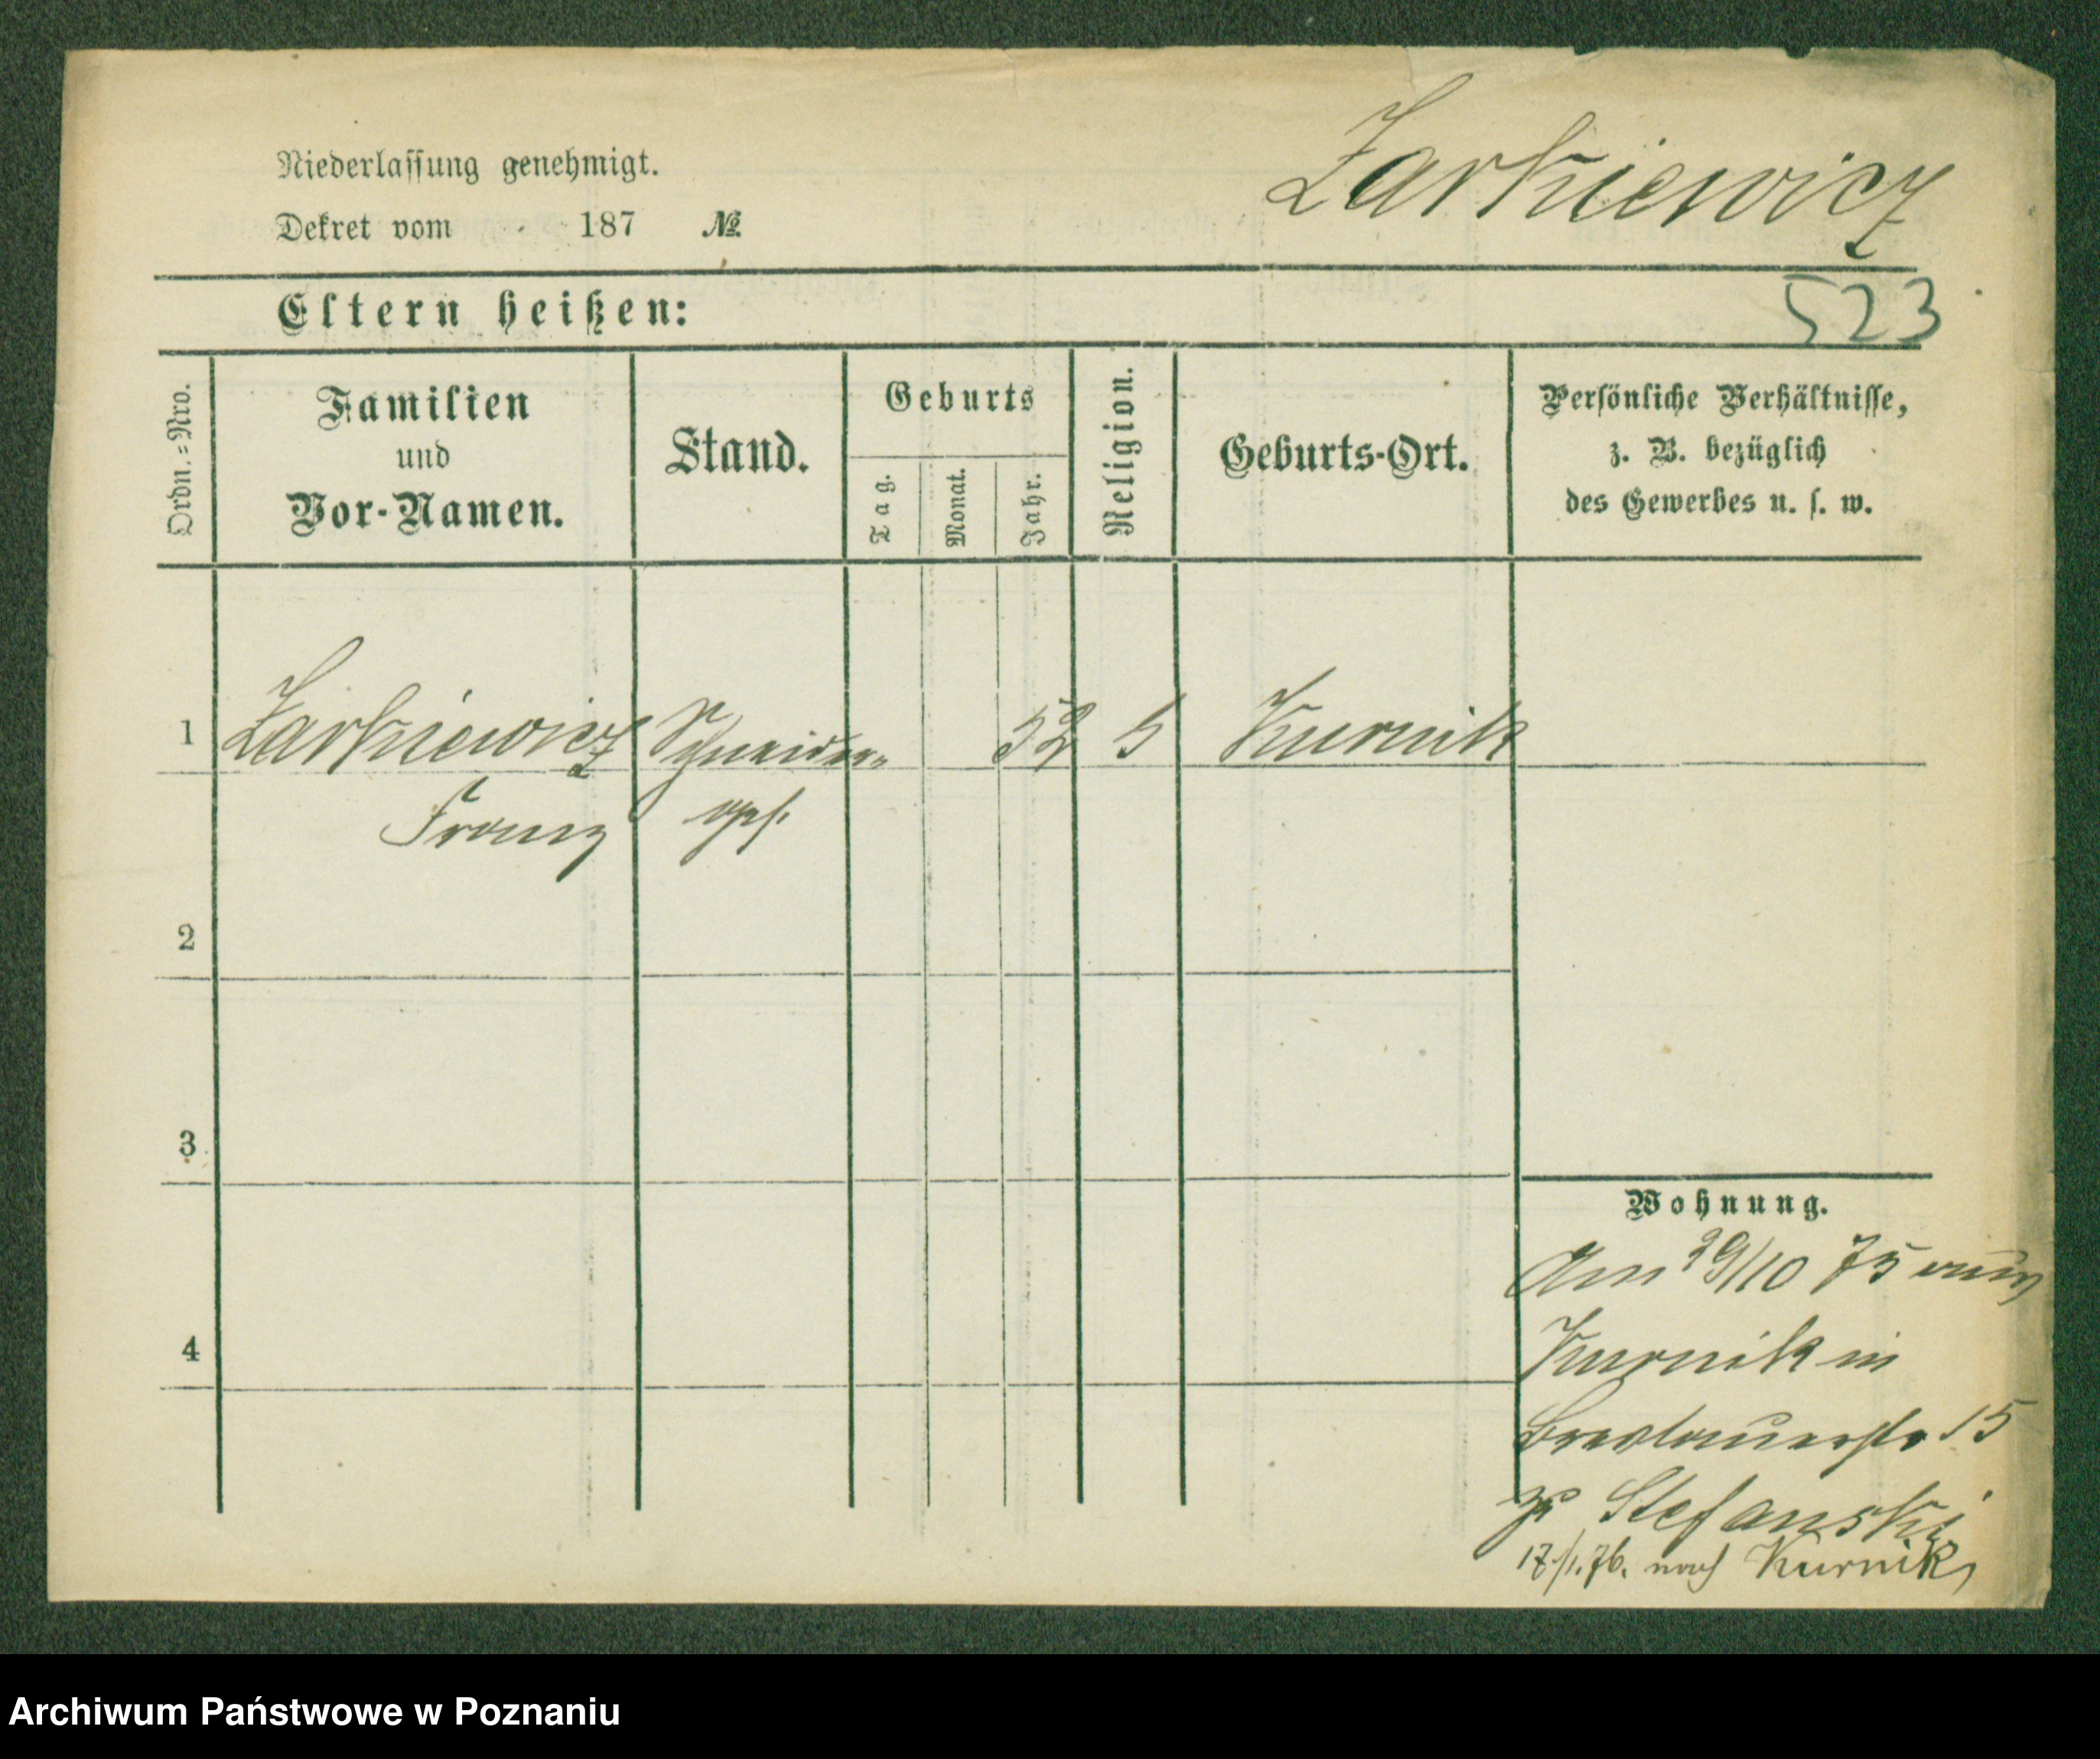 Niederlassung genehmigt.
Zarkiewicz
Dekret vom 187 №
Eltern heißen:
523
Ordn.=Nro.
Familien
und
Vor-Namen.
Stand.
Geburts
Tag.
Monat.
Jahr.
Religion.
Geburts-Ort.
Persönliche Verhältnisse,
z. B. bezüglich
des Gewerbes u. s. w.
1 Zarkiewicz Schneider= 52 Kurnik
Franz ges.
2
3
4
Wohnung.
Am 29/10 75 aus
Kurnik in
Breslauerstr 15
zu Stefanski
17/1.76. nach Kurnik
Archiwum Państwowe w Poznaniu